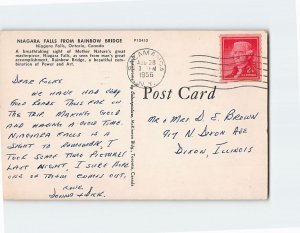 NIAGARA FALLS FROM RAINBOW BRIDGE
Niagara Falls, Ontario, Canada
P13413
A breathtaking sight of Mother Nature's great
masterpiece, Niagara Falls, as seen from man's great
accomplishment, Rainbow Bridge, a beautiful com-
bination of Power and Art.
DEAR FOLKS
WE HAVE HAD VERY
GOOD ROADS THUS FAR ON
THE TRIP. MAKING GOOD
AND HAVING A GOOD TIME.
NIAGARA FALLS IS A
SIGHT TO REMEMBER, I
TOOK SOME TIME PICTURES
LAST NIGHT, I SURE HOPE
ONE OF THEM COMES OUT.
LOVE
DONNA & DICK
AUG 28
1956
Post Card
MR & MRS D. E. BROWN
917 N DIXON AVE
DIXON, ILLINOIS